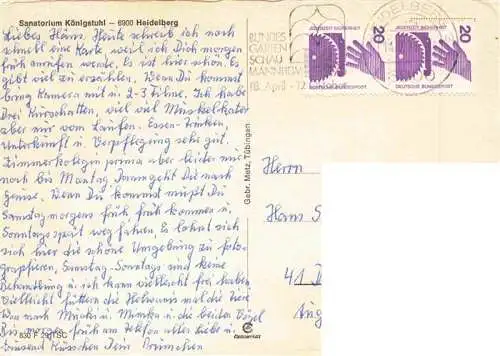 Sanatorium Königstuhl – 6900 Heidelberg
Liebes Hans. Heute schreib ich noch
schnell eine Karte, weil ich Dich morgen
früh anrufen werde. Es ist hier schön. Es
gibt viel zu erzählen. Wenn Du kommst
bring Kamera mit u. 2-3 Filme. Ich habe
Drei Kurschatten, viel viel Muskelkater
aber nur vom Laufen. Essen - Trinken,
Unterkunft u. Verpflegung sehr gut.
Zimmerkollegin prima aber leider nur
noch bis Montag dann geht Du nach
hause. Wenn Du kommst mußt Du
Samstag morgens früh früh kommen u.
Sonntag spät weg fahren. Es lohnt sich
sich hier die schöne Umgebung zu foto-
grapfieren, Samstag - Sonntags sind keine
Behandlung u. ich kann vielleicht frei haben
Vielleicht füttern die
Was mach u. Minka u. die beiden Vögel
Bis morgen früh am Telefon alles Liebe u.
tausend Küsschen Dein
830 F 29115C
Cekumet
Gebr. Metz, Tübingen
BUNDES
GARTEN
SCHAU
MANNHEIM
18. April - 12.
JEDERZEIT SICHERHEIT
20
DEUTSCHE BUNDESPOST
JEDERZEIT SICHERHEIT
20
DEUTSCHE BUNDESPOST
Herrn
Hans S
41 D